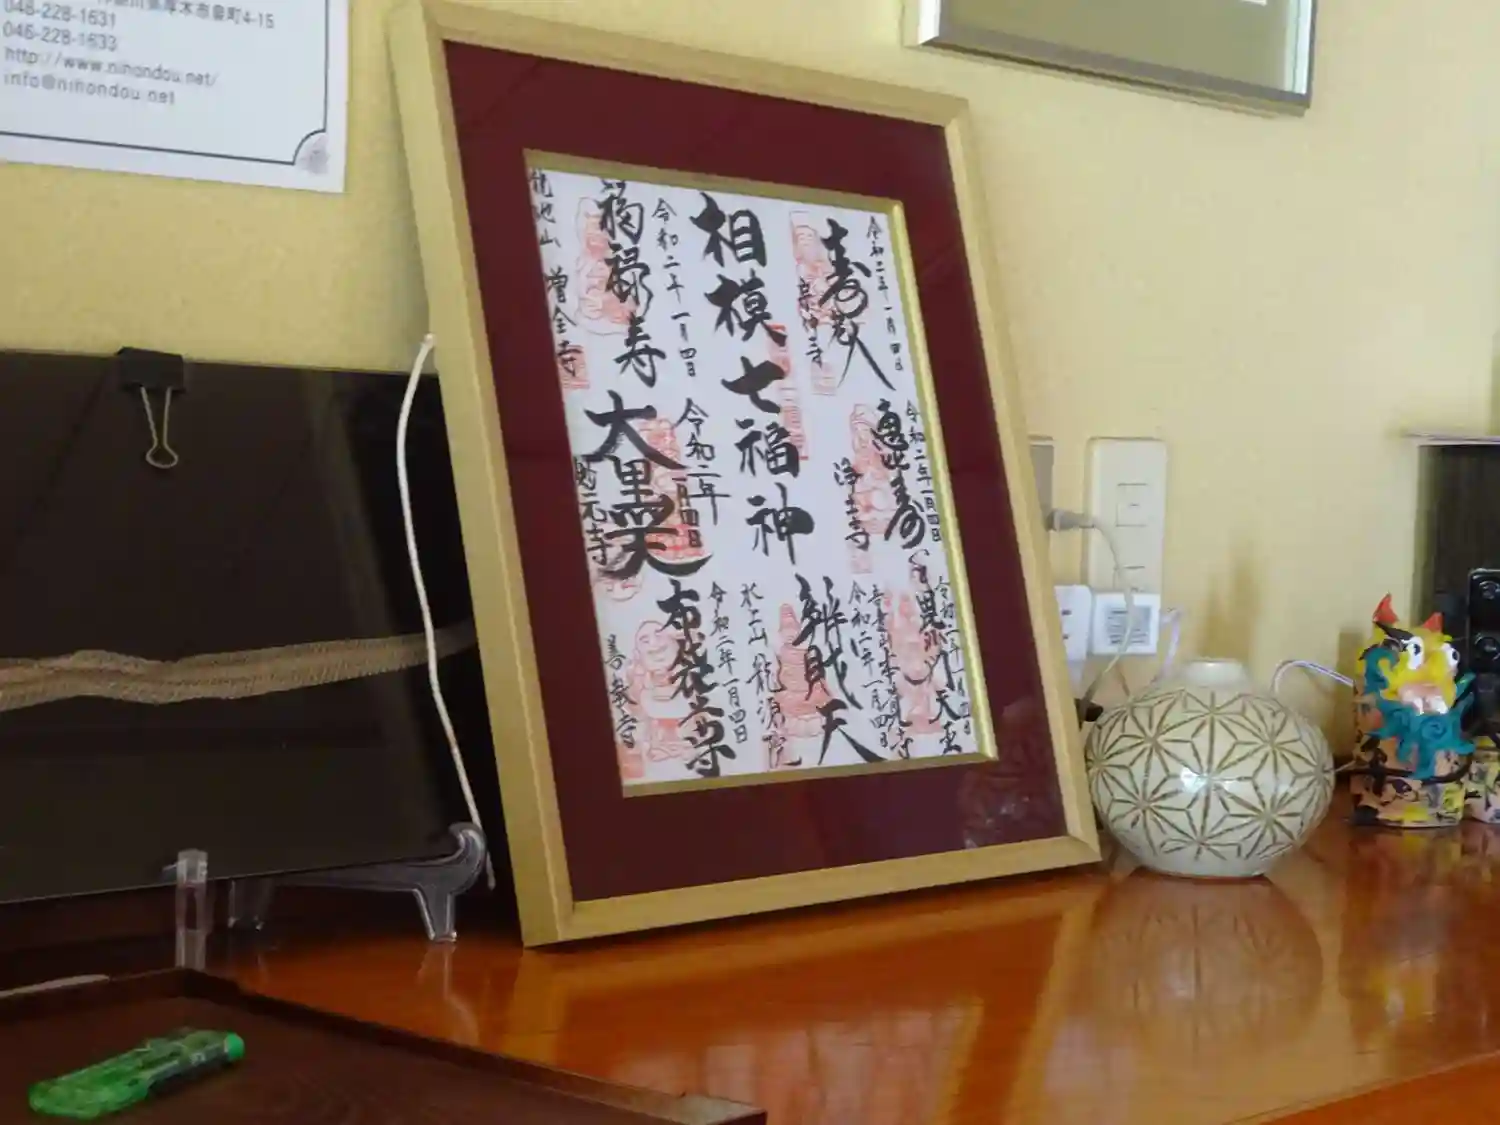 厚木市泉町4-15
046-228-1631
046-228-1633
http://www.nihondou.net/
info@nihondou.net
相模七福神
令和二年一月四日
寿老人
宗仲寺
令和二年一月四日
恵比寿
浄土寺
令和二年一月四日
毘沙門天
令和二年一月四日
辨財天
水上山龍源院
令和二年一月四日
布袋尊
善教寺
令和二年一月四日
福禄寿
龍池山増全寺
令和二年一月四日
大黒天
妙元寺